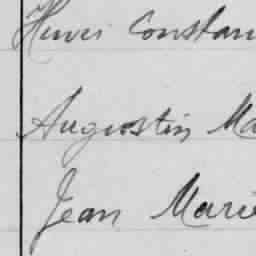 Henri Constan
Augustin Ma
Jean Marie